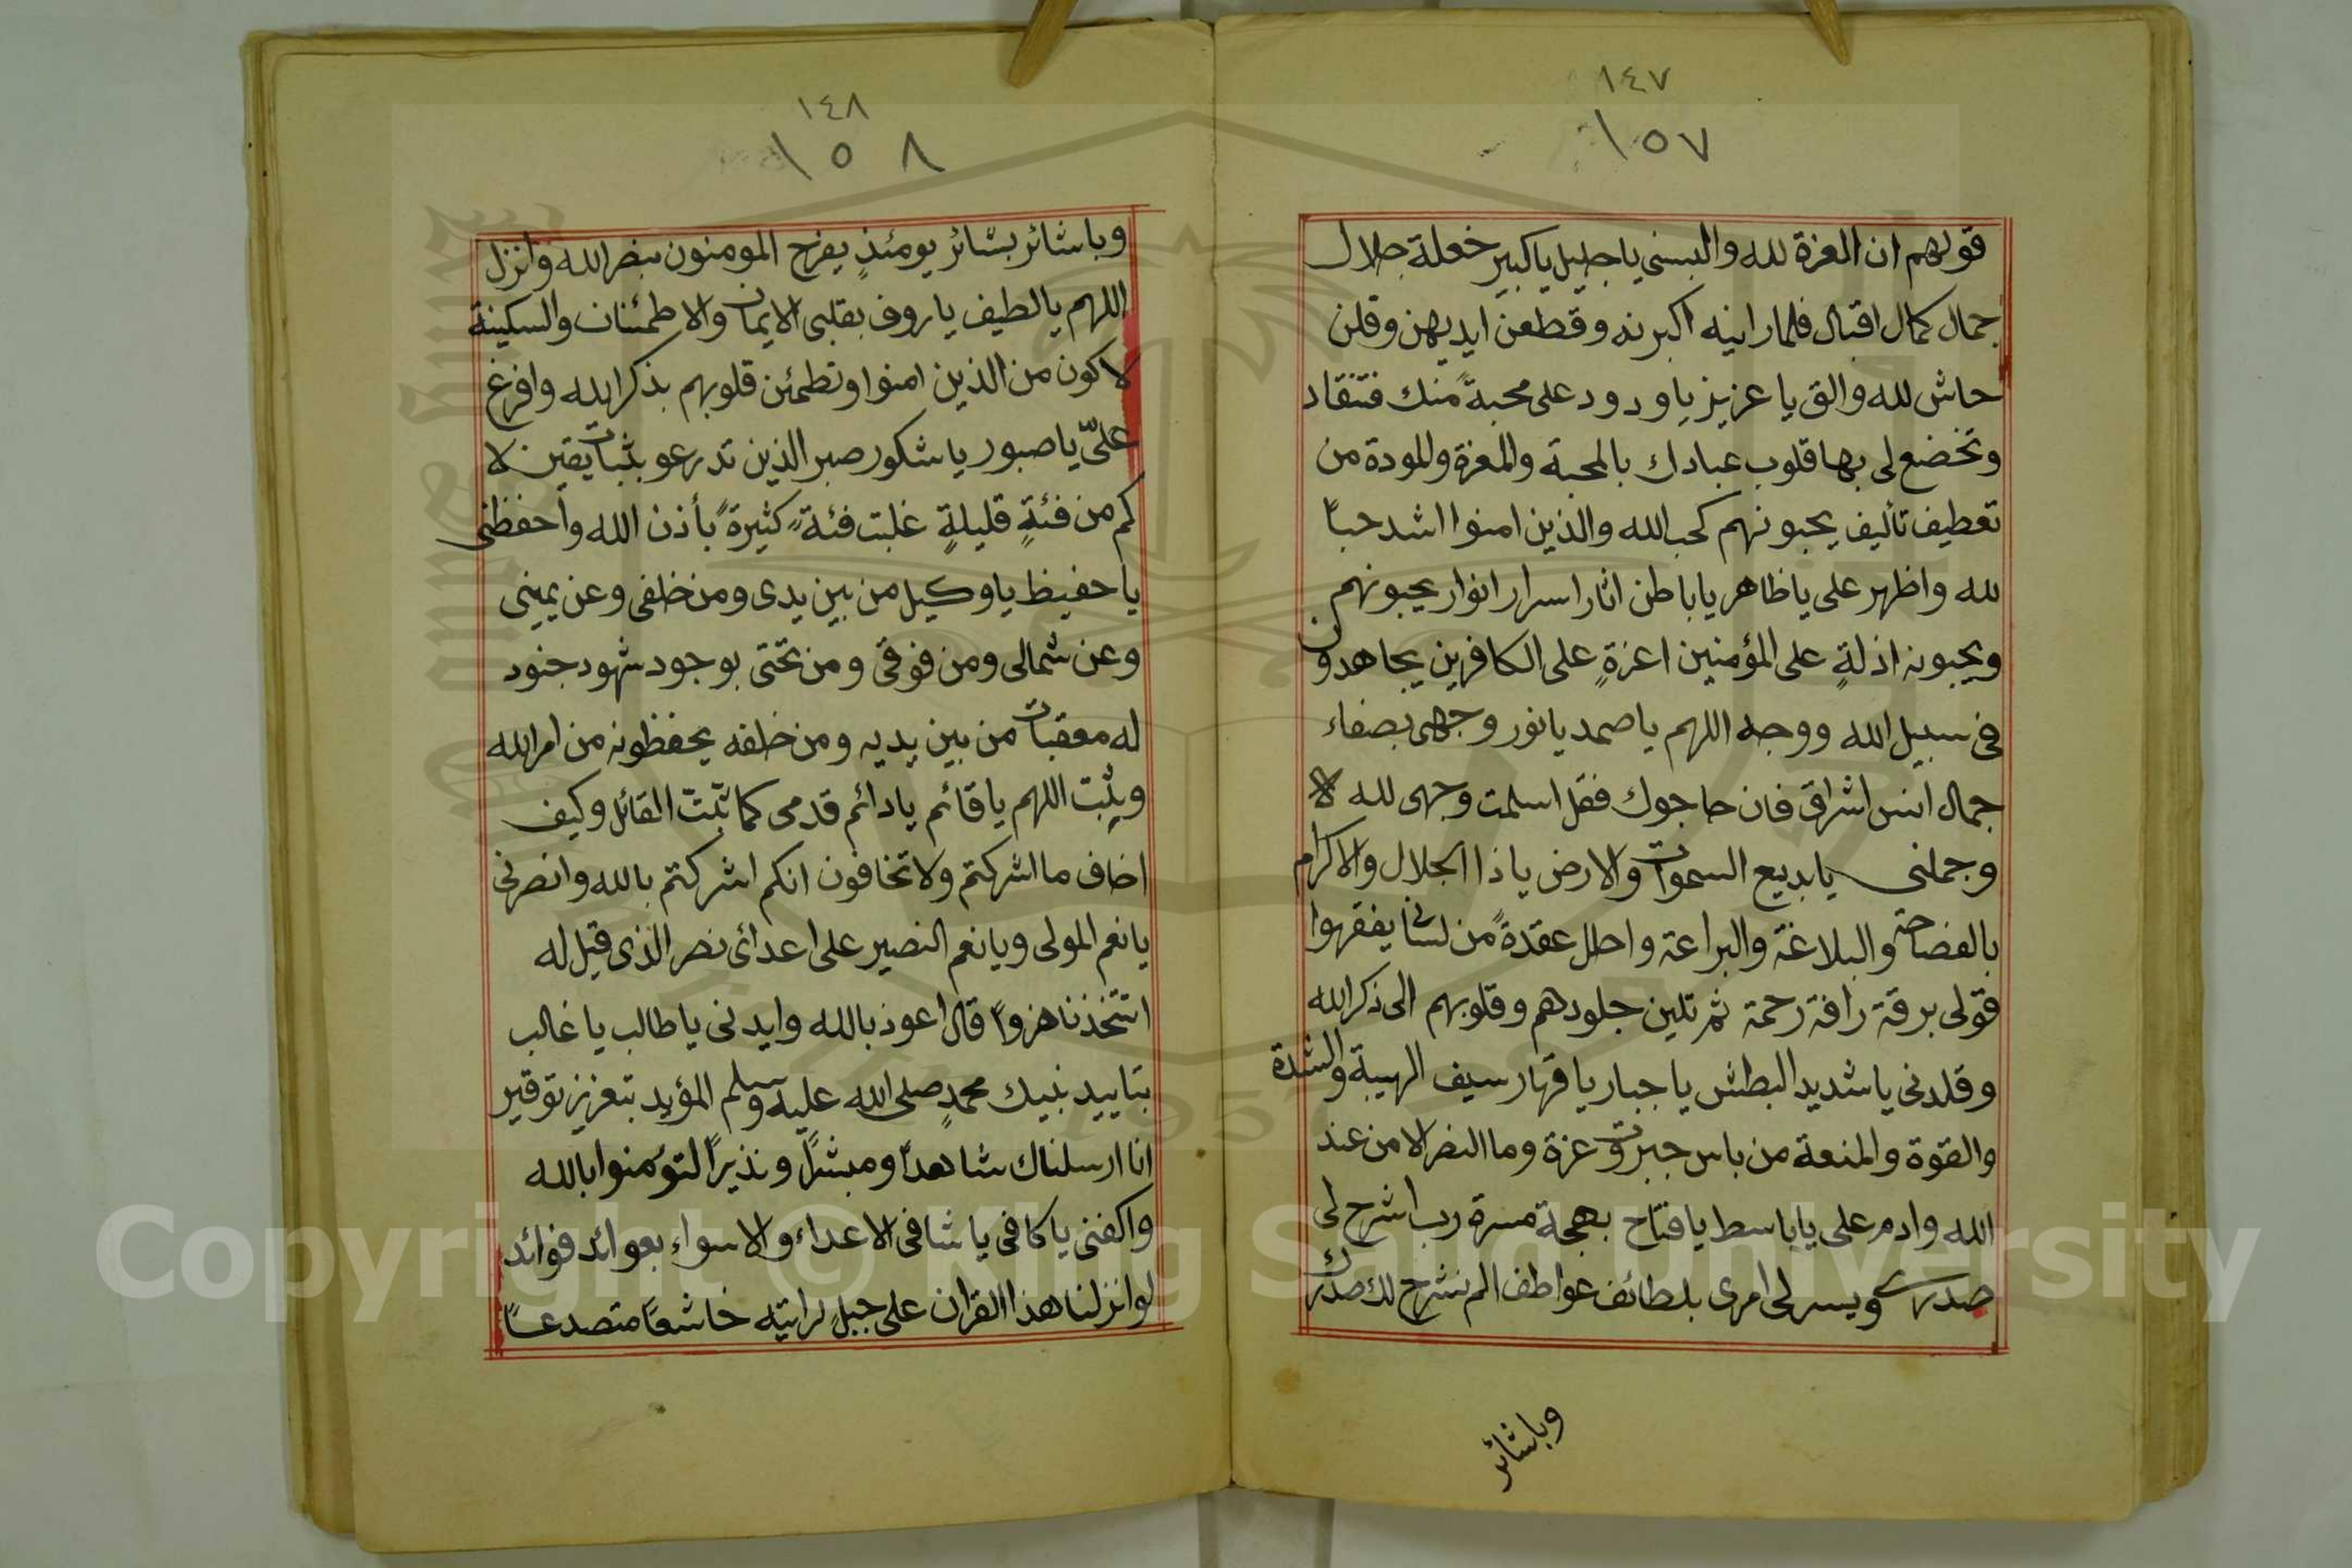 ١٤٧
١٥٧
قولهم ان العزة لله والبسني يا جليل يا كبير خعلة جلال
جمال كمال اقبال فلما راينه اكبرنه وقطعن ايديهن وقلن
حاش لله والق يا عزيز يا ودود على محبةً منك فتنقاد
وتخضع لى بها قلوب عبادك بالمحبة والمعزة والمودة من
تعطيف تأليف يحبونهم كحب الله والذين امنوا اشد حباً
لله واظهر على يا ظاهر يا باطن اثار اسرار انوار يحبونهم
ويحبونه اذلةٍ على المؤمنين اعزةٍ على الكافرين يجاهدون
فى سبيل الله ووجه اللهم يا صمد يا نور وجهى بصفاء
جمال انس اشراق فان حاجوك فقل اسلمت وجهى لله
وجملنى يا بديع السموات والارض يا ذا الجلال والاكرام
بالفصاحة والبلاغة والبراعة واحلل عقدةً من لسانى يفقهوا
قولى برقة رافة رحمة ثم تلين جلودهم وقلوبهم الى ذكر الله
وقلدنى يا شديد البطش يا جبار يا قهار سيف الهيبة والشدة
والقوة والمنعة من باس جبروت عزة وما النصر الا من عند
الله وادم على يا باسط يا فتاح بهجة مسرة رب اشرح لى
صدرى ويسر لى امرى بلطائف عواطف الم نشرح لك صدرك
وباشائر
١٤٨
١٥٨
وباشائر بشائر يومئذٍ يفرح المومنون بنصر الله وانزل
اللهم يا لطيف يا روف بقلبى الايمان والاطمئنان والسكينة
لاكون من الذين امنوا وتطمئن قلوبهم بذكر الله وافرغ
علىّ يا صبور يا شكور صبر الذين تدرعو بثبات يقين لا
كم من فئةٍ قليلةٍ غلبت فئةً كثيرةً بأذن الله وأحفظنى
يا حفيظ يا وكيل من بين يدى ومن خلفى وعن يمينى
وعن شمالى ومن فوقى ومن تحتى بوجود شهود جنود
له معقبات من بين يديه ومن خلفه يحفظونه من امر الله
ويثبت اللهم يا قائم يا دائم قدمى كما ثبّتّ القائل وكيف
اخاف ما اشركتم ولا تخافون انكم اشركتم بالله وانصرنى
يا نعم المولى ويا نعم النصير على اعدائى نصر الذى قيل له
اتتخذنا هزواً قال اعوذ بالله وايدنى يا طالب يا غالب
بتاييد نبيك محمدٍ صلى الله عليه وسلم المؤيد بتعزيز توقير
انا ارسلناك شاهداً ومبشراً ونذيراً لتؤمنوا بالله
واكفنى يا كافى يا شافى الاعداء والاسواء بعوائد فوائد
لو انزلنا هذا القران على جبلٍ لرايته خاشعاً متصدعاً
Copyright © King Saud University
1957